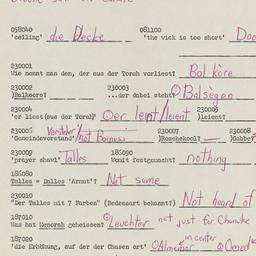 058040 081100
'ceiling' die Decke 'the wick is too short' Doo
230001
Wie nennt man den, der aus der Torah vorliest? Bal kore
230002 230003
)Balkore? ...der dabei steht? Balsegen
230004 230005
'er liest (aus der Torah)' Der leint/leient )leient?
230006 Vorsteher/ 230007 230008
'Gemeindevorstand' not Borness )Roschekool? — )Gabbe?
230009 181090
'prayer shawl' Talles Womit festgemacht? nothing
181080
Talles = Dalles 'Armut'? Not same
230010
"Der Talles mit 7 Farben" (Redensart bekannt?) Not heard of
187010
Was hat Menorah geheissen? Leuchter not just for Chanuke
187020 in center
'die Erhöhung, auf der der Chasen ort' Almemor Omed